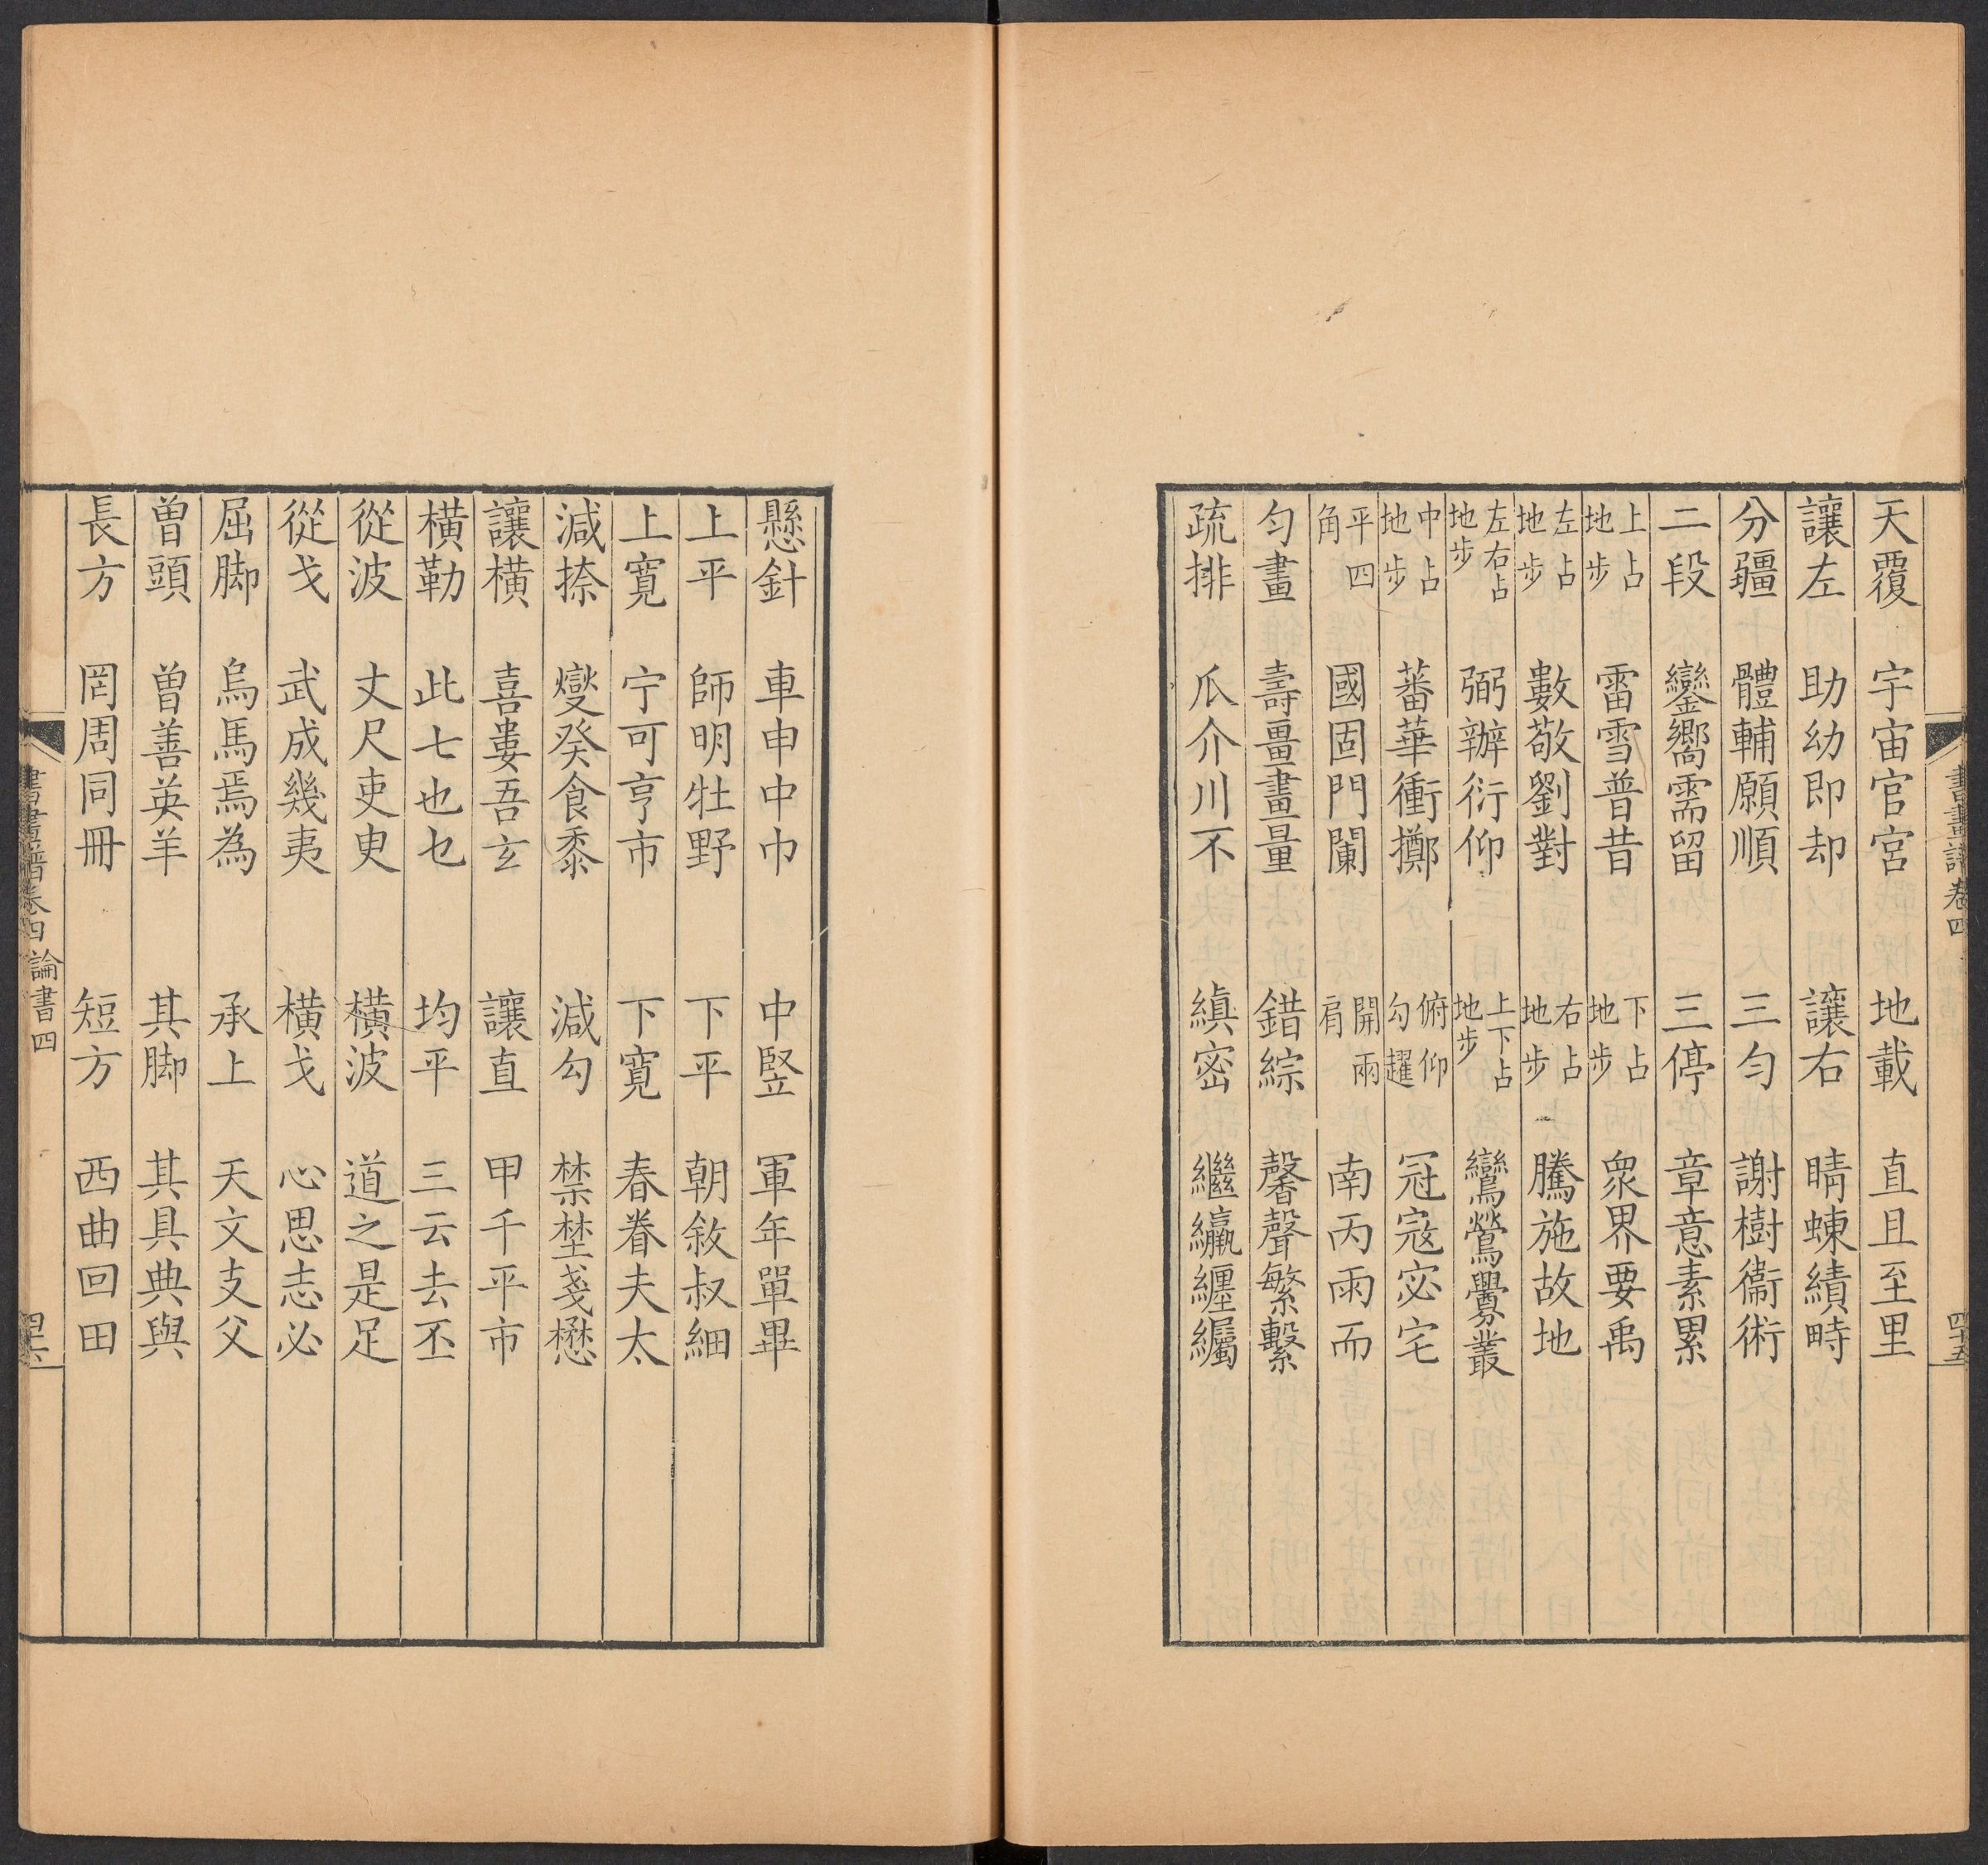 書畫譜卷四
四十五
天覆 宇宙官宮 地載 直且至里
讓左 助幼即却 讓右 晴蝀績畤
分疆 體輔願順 三勻 謝樹衞術
二段 鑾嚮需留 三停 章意素累
上占地步 雷雪普昔 下占地步 衆界要禹
左占地步 數敬劉對 右占地步 騰施故地
左右占地步 弼辦衍仰 上下占地步 鸞鶯釁叢
中占地步 蕃華衝擲 俯仰勾趯 冠寇宓宅
平四角 國固門闌 開兩肩 南丙雨而
勻畫 壽畺畫量 錯綜 馨聲繁繫
疏排 爪介川不 縝密 繼纑纏纏
懸針 車申中巾 中竪 軍年單畢
上平 師明牡野 下平 朝敘叔細
上寬 宁可亨市 下寬 春眷夫太
減捺 燮癸食黍 減勾 禁埜戔懋
讓橫 喜婁吾玄 讓直 甲千平市
橫勒 此七也乜 均平 三云去丕
從波 丈尺吏㕜 橫波 道之是足
從戈 武成幾夷 橫戈 心思志必
屈脚 烏馬焉為 承上 天文支父
曾頭 曾善英羊 其脚 其具典與
長方 罔周同冊 短方 西曲回田
書畫譜卷四 論書四
四十六